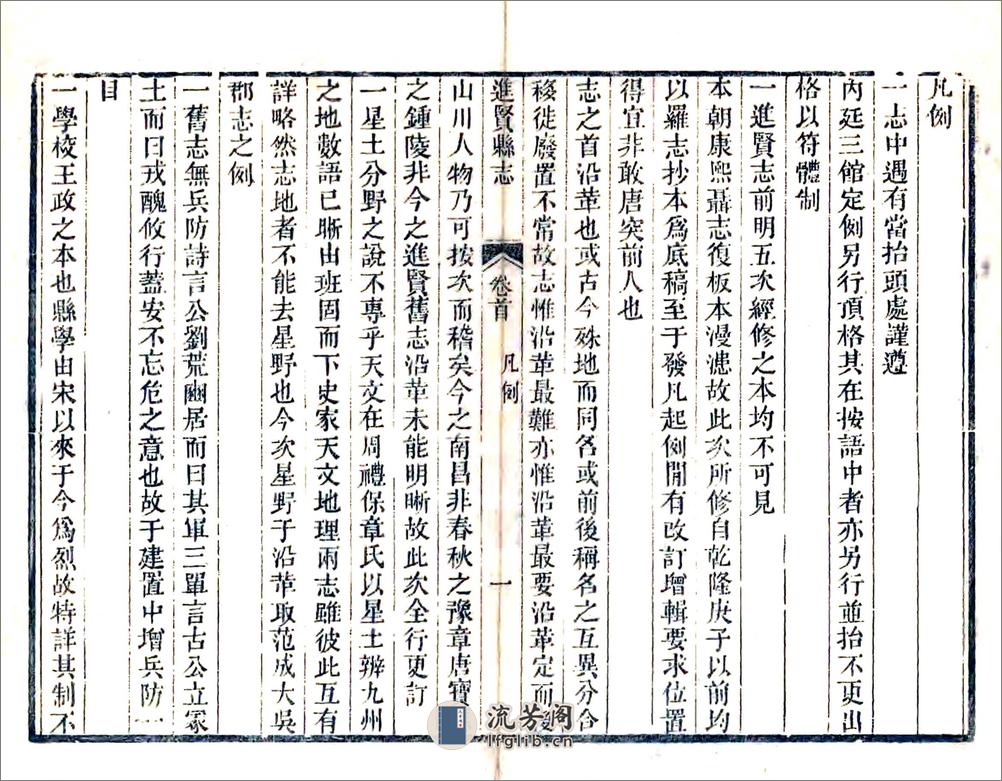 凡例
一志中遇有當抬頭處謹遵
內廷三館定例另行頂格其在按語中者亦另行並抬不更出
格以符體制
一進賢志前明五次經修之本均不可見
本朝康熙聶志復板本漫漶故此次所修自乾隆庚子以前均
以羅志抄本爲底稿至于發凡起例閒有改訂增輯要求位置
得宜非敢唐突前人也
志之首沿革也或古今殊地而同名或前後稱名之互異分合
移徙廢置不常故志惟沿革最難亦惟沿革最要沿革定而後
進賢縣志
卷首
凡例
一
山川人物乃可按次而稽矣今之南昌非春秋之豫章唐寶
之鍾陵非今之進賢舊志沿革未能明晰故此次全行更訂
一星土分野之說不專乎天文在周禮保章氏以星土辨九州
之地數語已晰由班固而下史家天文地理兩志雖彼此互有
詳略然志地者不能去星野也今次星野于沿革取范成大吳
郡志之例
一舊志無兵防詩言公劉荒豳居而曰其軍三單言古公立冢
土而曰戎醜攸行蓋安不忘危之意也故于建置中增兵防一
目
一學校王政之本也縣學由宋以來于今爲烈故特詳其制不
流芳阁
lfglib.cn